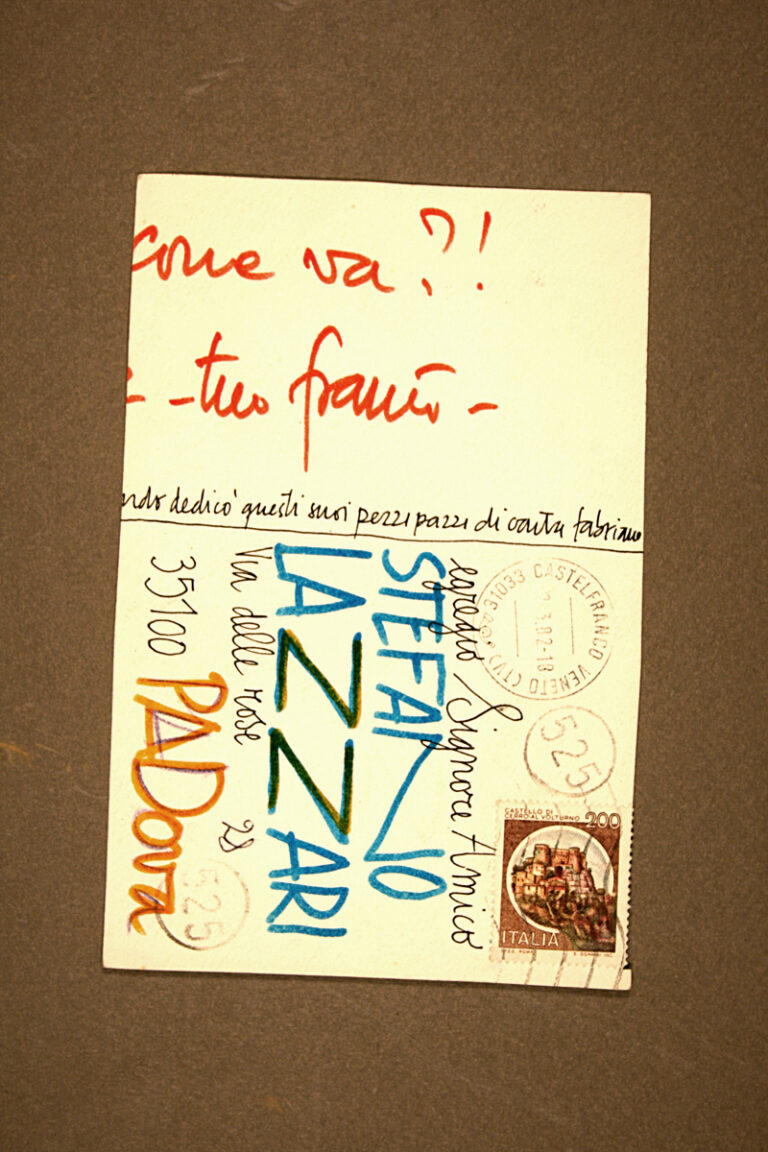 come va?!
- -tuo franco-
ndo dedicò questi suoi pezzi pazzi di carta fabriano
egregio Signore Amico
STEFANO
LAZZARI
Via delle rose 28
35100 PADova
31033 CASTELFRANCO VENETO (TV)
3.82-18
525
525
CASTELLO DI
CERRO AL VOLTURNO
200
ITALIA